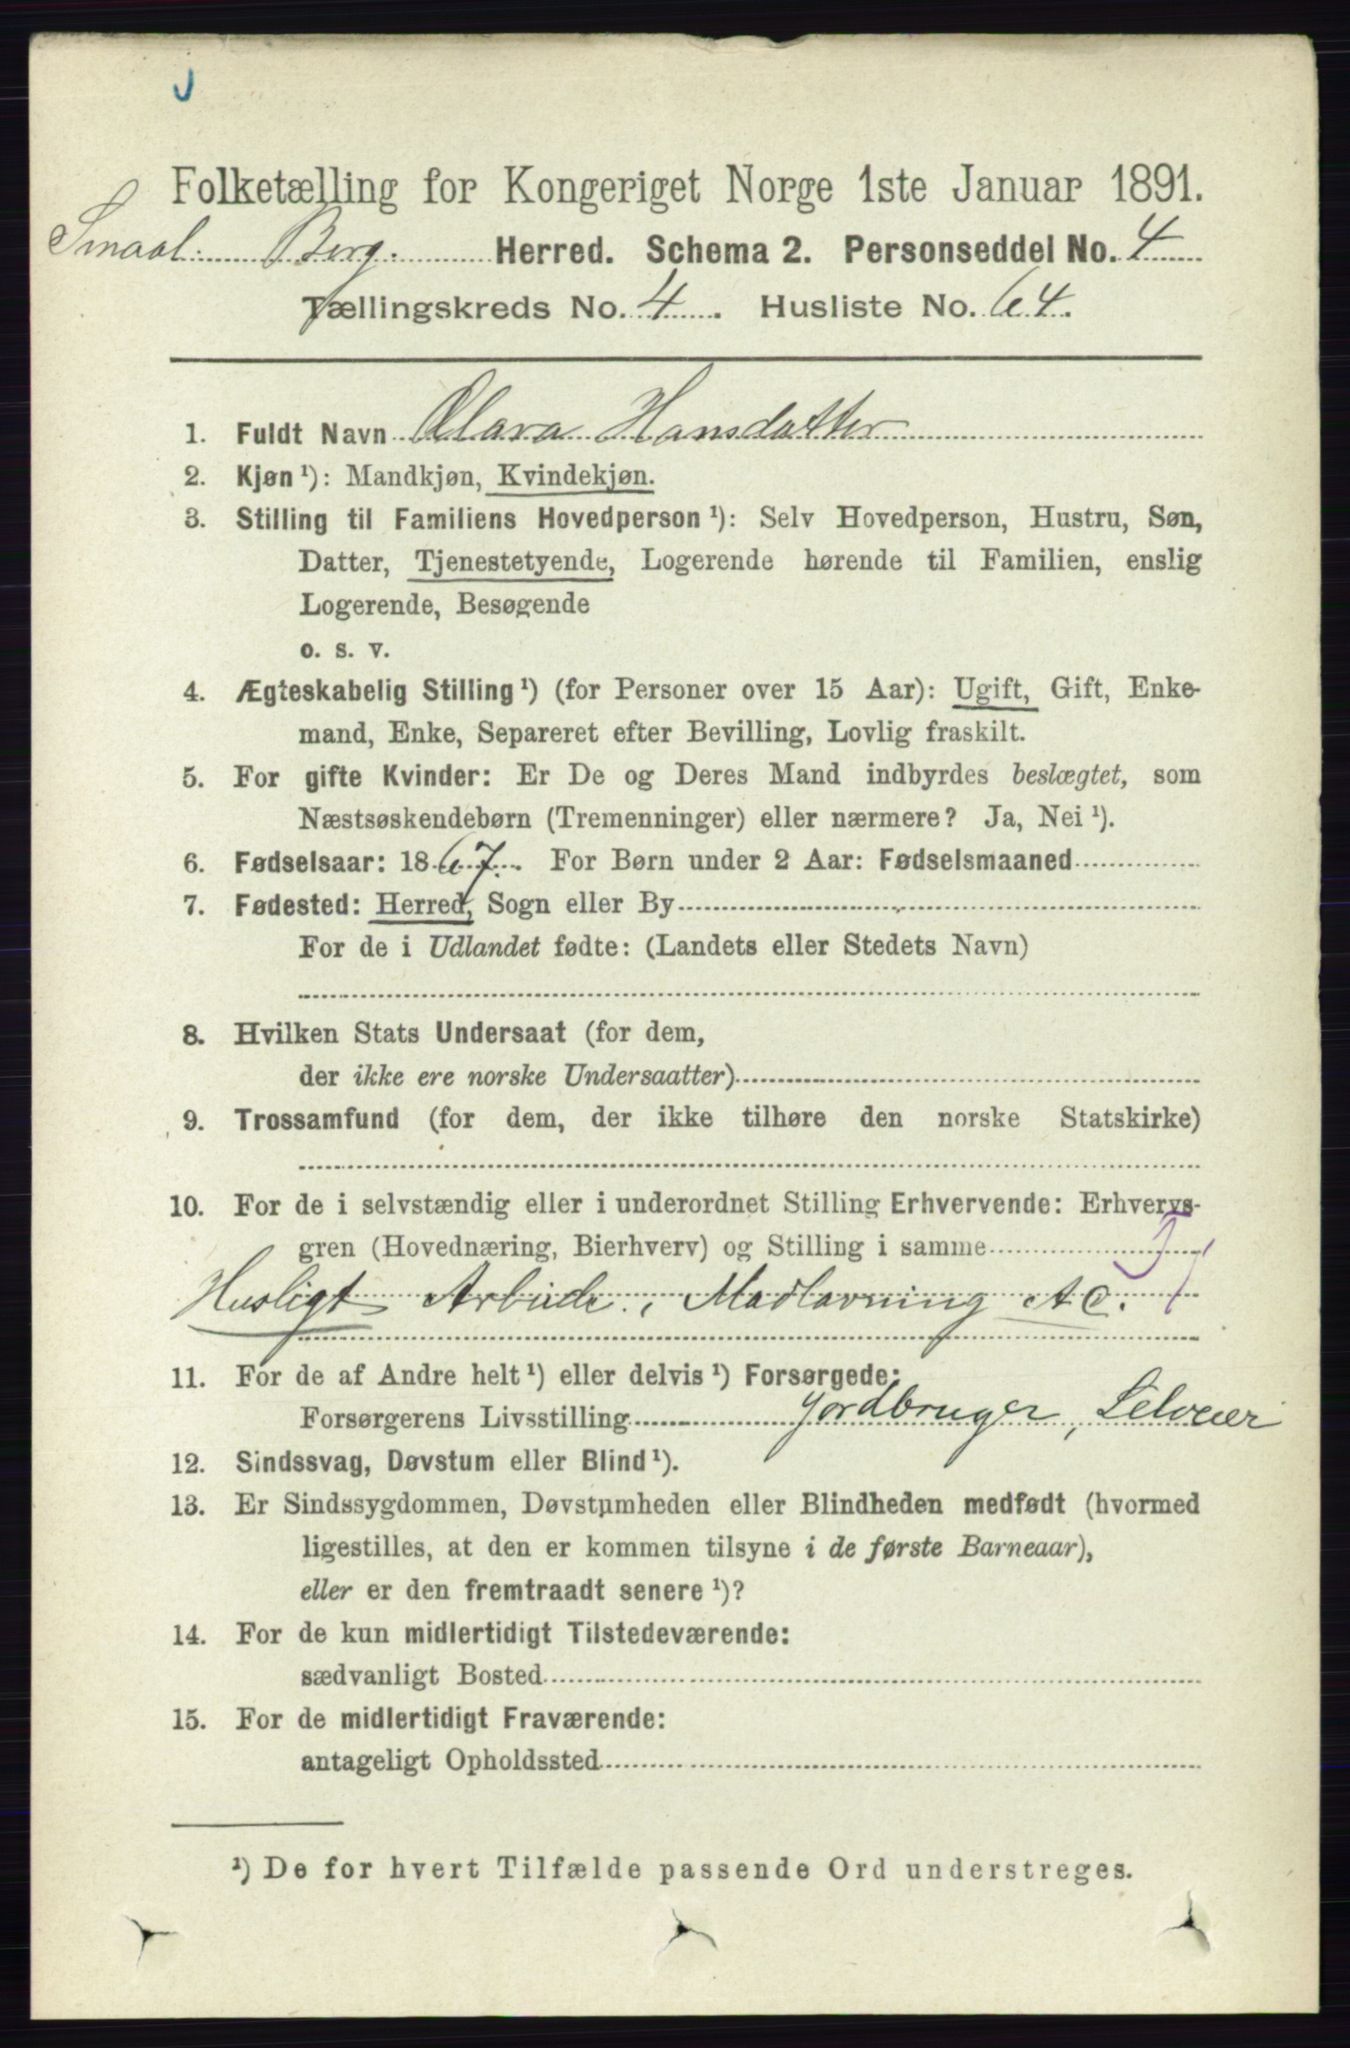 Folketælling for Kongeriget Norge 1ste Januar 1891.
Smaal. Berg. Herred. Schema 2. Personseddel No. 4
Tællingskreds No. 4. Husliste No. 64.
1. Fuldt Navn Clara Hansdatter
2. Kjøn ¹): Mandkjøn, Kvindekjøn.
3. Stilling til Familiens Hovedperson ¹): Selv Hovedperson, Hustru, Søn,
Datter, Tjenestetyende, Logerende hørende til Familien, enslig
Logerende, Besøgende
o. s. v.
4. Ægteskabelig Stilling ¹) (for Personer over 15 Aar): Ugift, Gift, Enke-
mand, Enke, Separeret efter Bevilling, Lovlig fraskilt.
5. For gifte Kvinder: Er De og Deres Mand indbyrdes beslægtet, som
Næstsøskendebørn (Tremenninger) eller nærmere? Ja, Nei ¹).
6. Fødselsaar: 1867. For Børn under 2 Aar: Fødselsmaaned
7. Fødested: Herred, Sogn eller By
For de i Udlandet fødte: (Landets eller Stedets Navn)
8. Hvilken Stats Undersaat (for dem,
der ikke ere norske Undersaatter)
9. Trossamfund (for dem, der ikke tilhøre den norske Statskirke)
10. For de i selvstændig eller i underordnet Stilling Erhvervende: Erhvervs-
gren (Hovednæring, Bierhverv) og Stilling i samme
Husligt Arbeide, Madlavning
11. For de af Andre helt ¹) eller delvis ¹) Forsørgede:
Forsørgerens Livsstilling Jordbruger, Selveier
12. Sindssvag, Døvstum eller Blind ¹).
13. Er Sindssygdommen, Døvstumheden eller Blindheden medfødt (hvormed
ligestilles, at den er kommen tilsyne i de første Barneaar),
eller er den fremtraadt senere ¹)?
14. For de kun midlertidigt Tilstedeværende:
sædvanligt Bosted
15. For de midlertidigt Fraværende:
antageligt Opholdssted
¹) De for hvert Tilfælde passende Ord understreges.